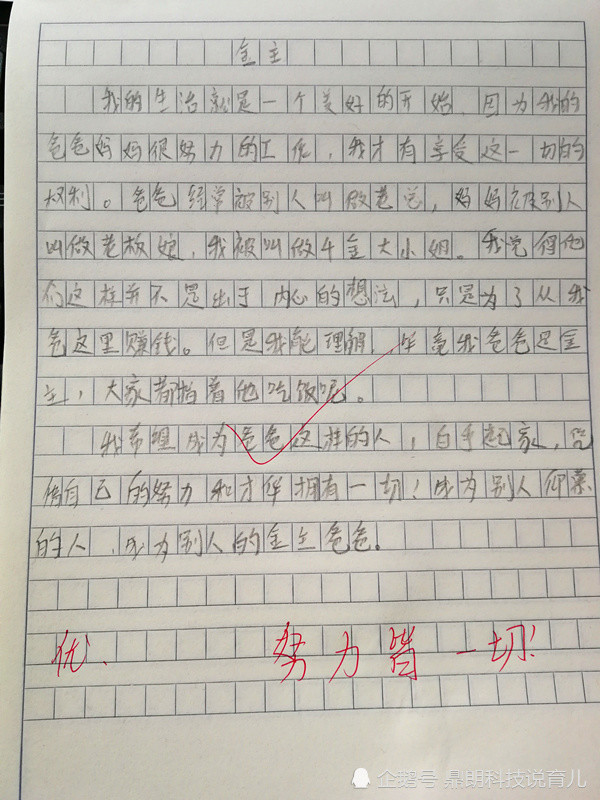 金主
我的生活就是一个美好的开始,因为我的
爸爸妈妈很努力的工作,我才有享受这一切的
权利。爸爸经常被别人叫做老总,妈妈被别人
叫做老板娘,我被叫做千金大小姐。我觉得他
们这样并不是出于内心的想法,只是为了从我
爸这里赚钱。但是我能理解,毕竟我爸爸是金
主,大家都指着他吃饭呢。
我希望成为爸爸这样的人,白手起家,凭
借自己的努力和才华拥有一切!成为别人仰慕
的人,成为别人的金主爸爸。
优、 努力皆一切!
企鹅号 鼎朗科技说育儿